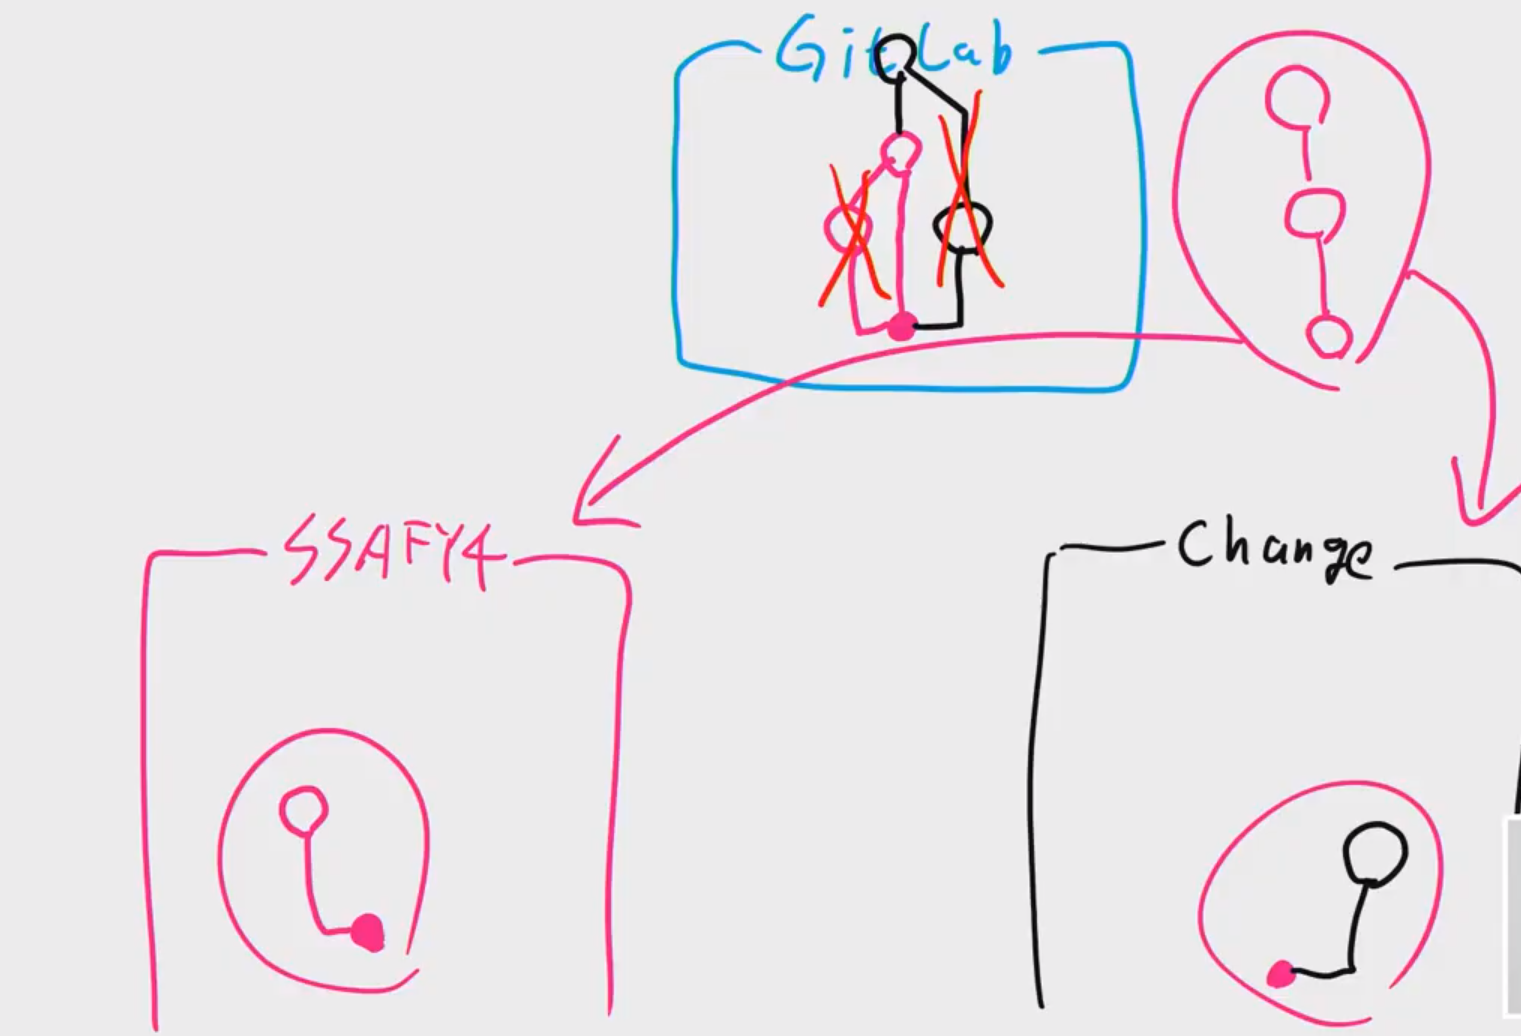 GitLab
SSAFY4
Change